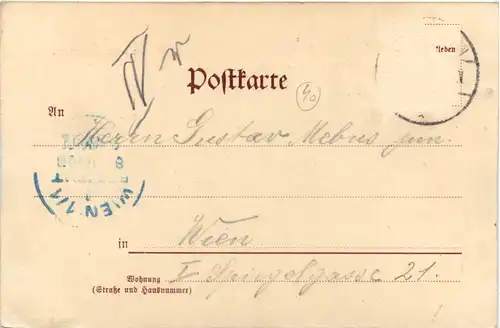 rleben
Postkarte
40
An
Herrn Gustav Mebus jun.
WIEN 1/1
in Wien
Wohnung I Spiegelgasse 21.
(Straße und Hausnummer)